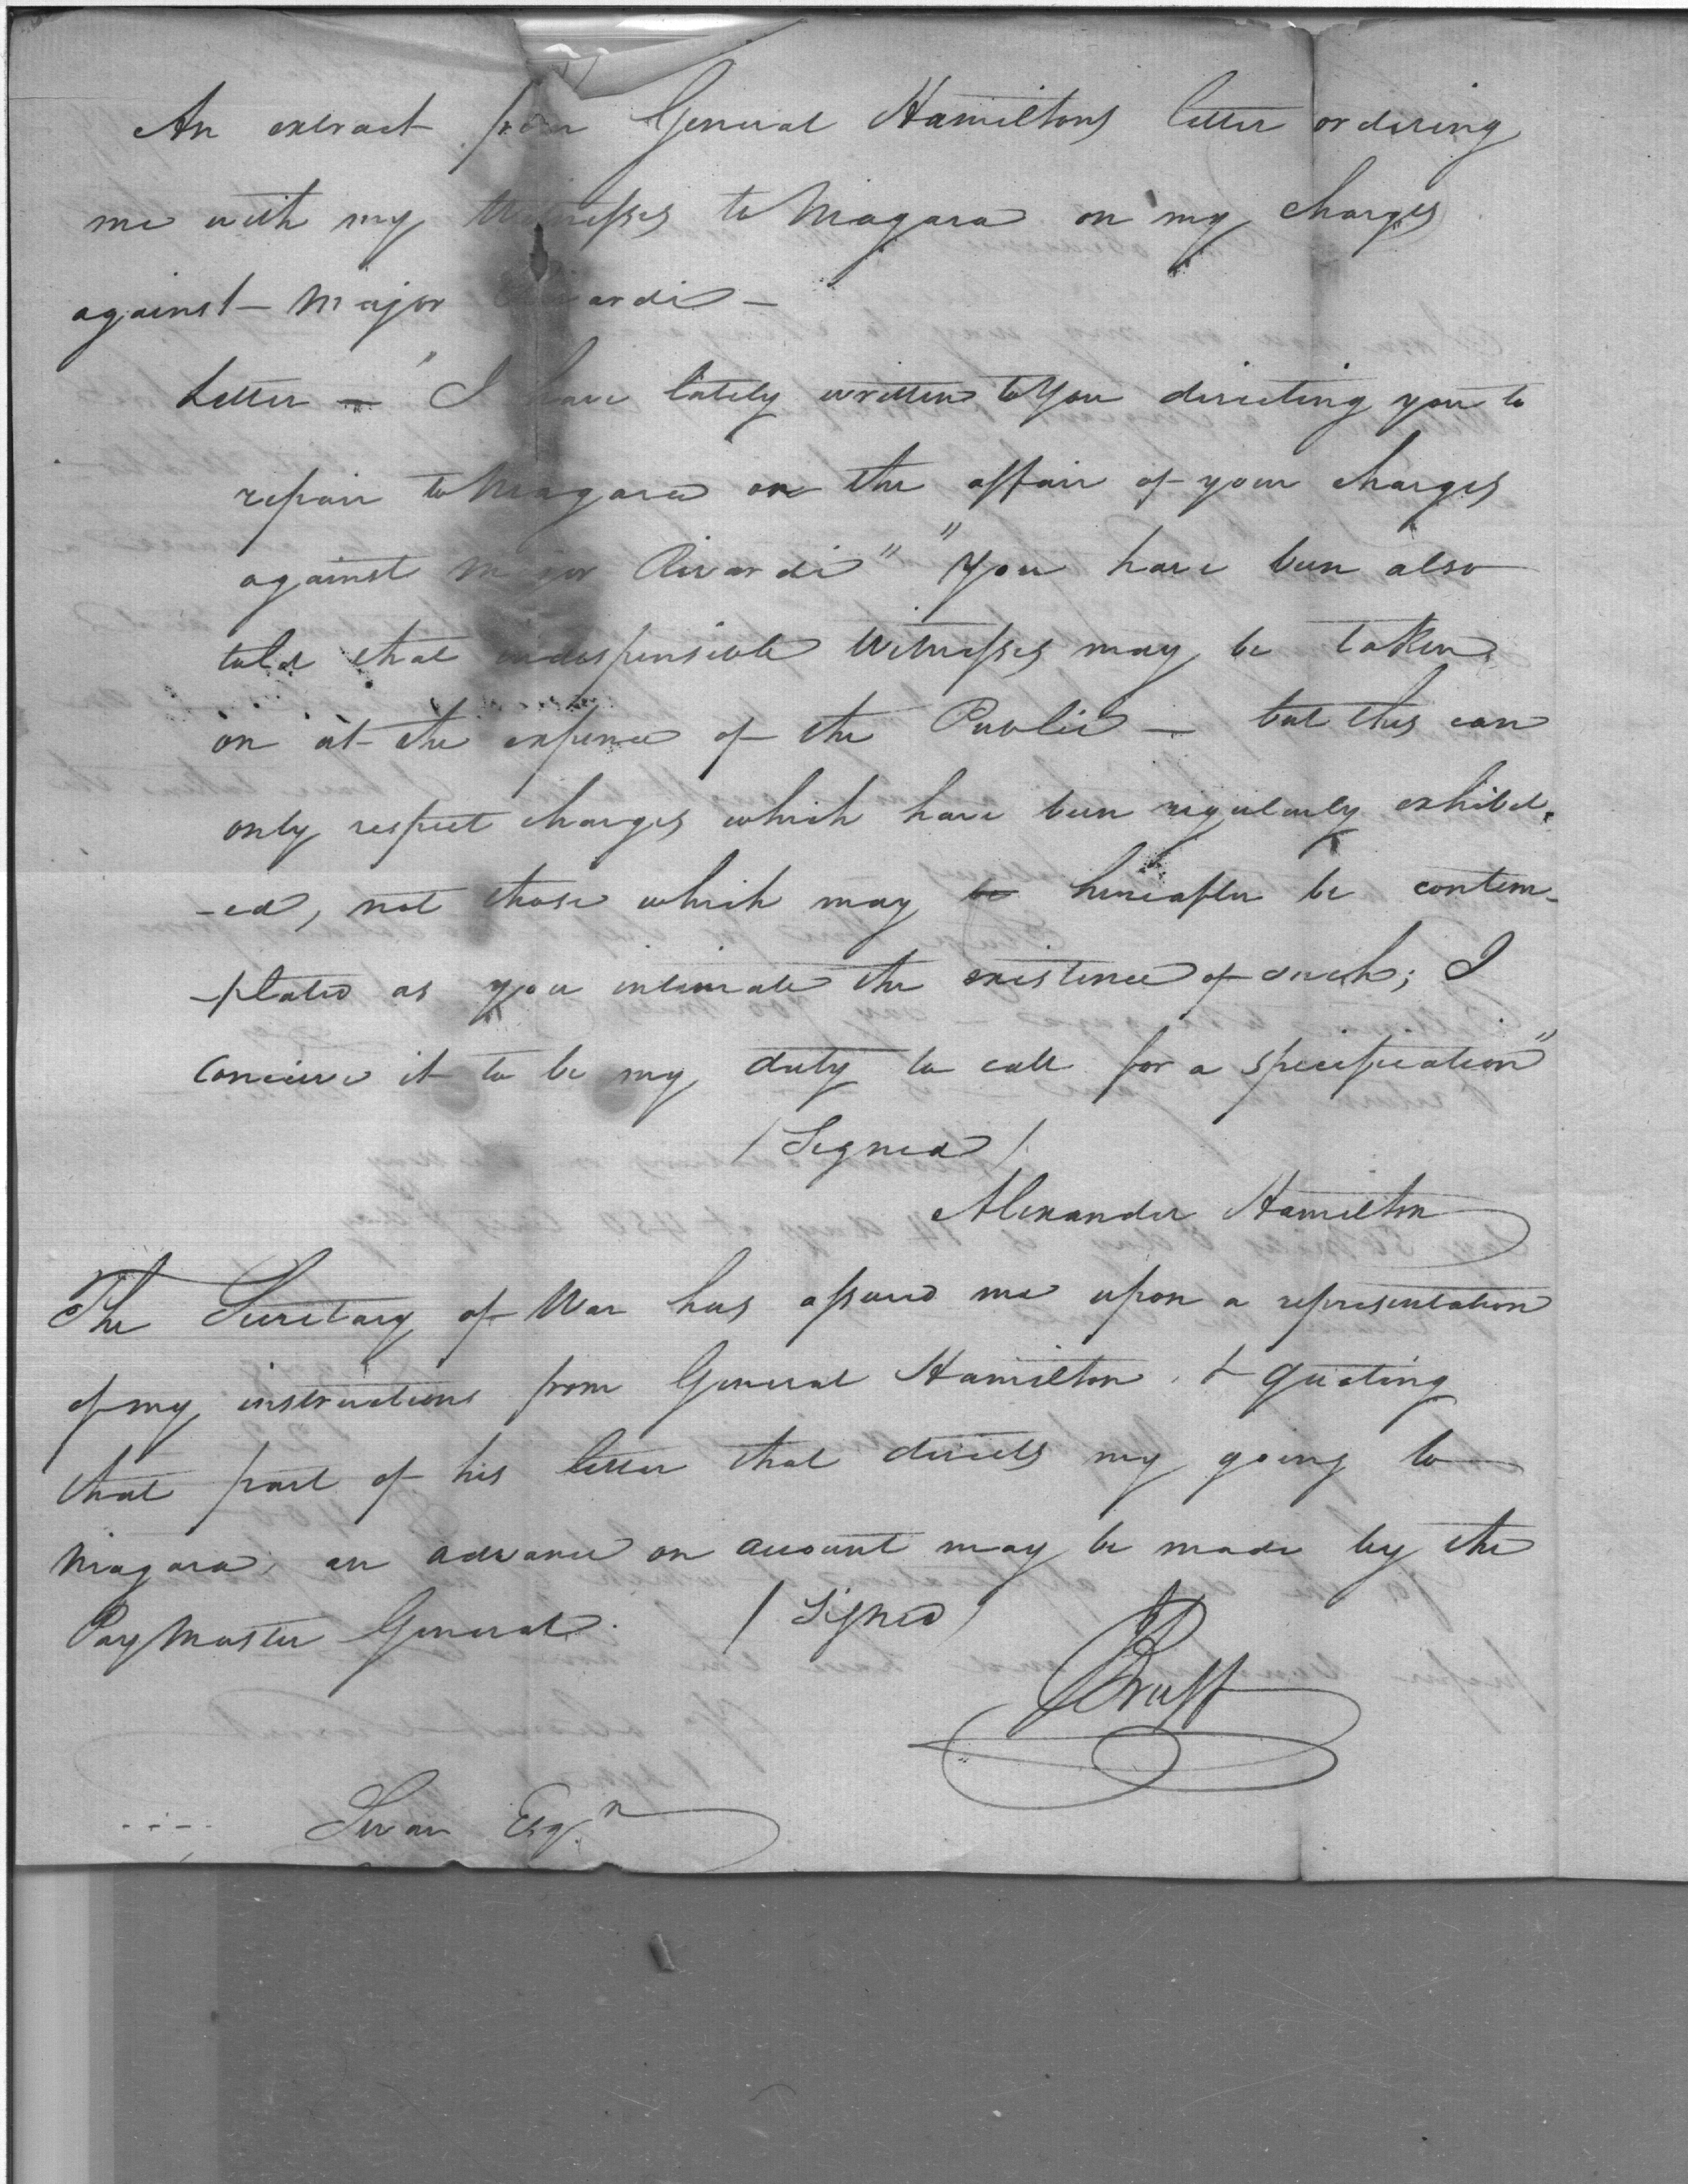 An extract from General Hamiltons letter ordering
me with my Witnesses to Niagara on my charges
against - Major Rivardi -
Letter - "I have lately written to You directing you to
repair to Niagara on the affair of your charges
against Major Rivardi" "You have been also
told that indispensible Witnesses may be taken
on at the expence of the Public - but this can
only respect charges which have been regularly exhibit-
-ed, not those which may be hereafter be contem-
-plated as you intimate the existence of such; I
conceive it to be my duty to call for a specification"
/ Signed /
Alexander Hamilton
The Secretary of War has assured me upon a representation
of my instructions from General Hamilton, & quoting
that part of his letter that directs my going to
Niagara, an advance on account may be made by the
PayMaster General. / Signed /
Bruff
Swan Esqr